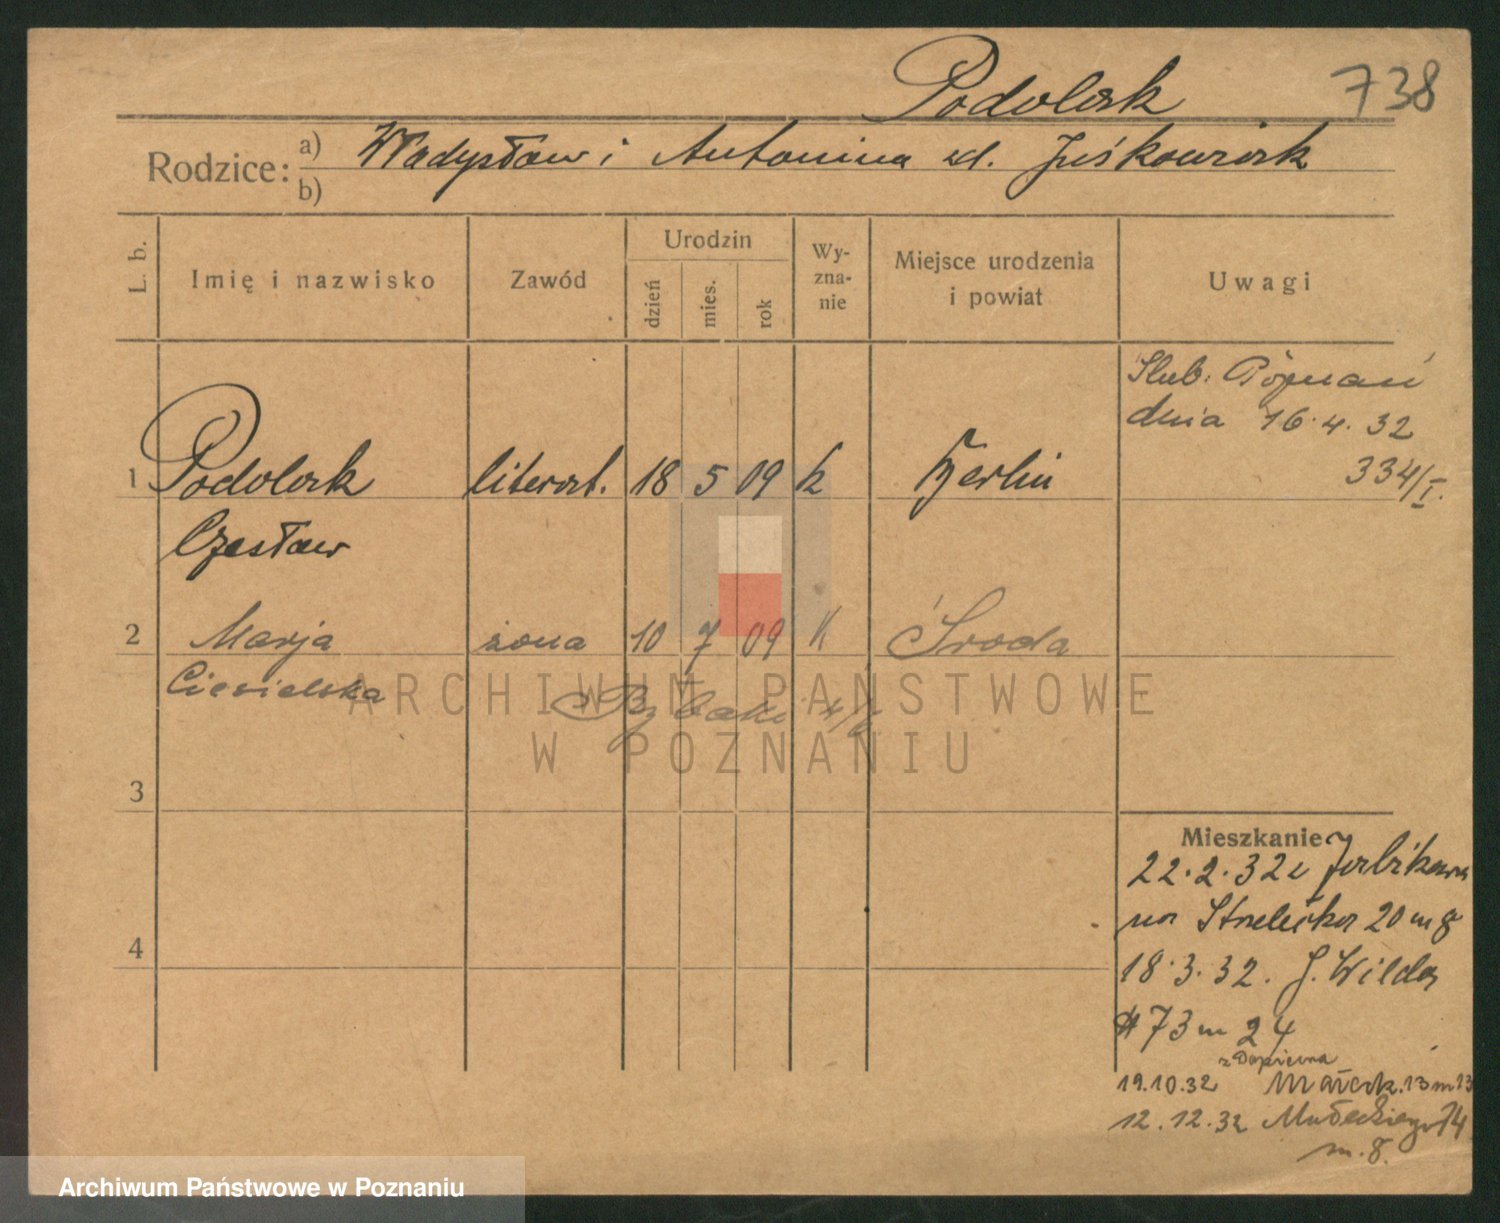 Podolak 738
Rodzice: a) Władysław i Antonina zd. Juśkowiak
b)
L. b. Imię i nazwisko Zawód Urodzin dzień mies. rok Wy-zna-nie Miejsce urodzenia i powiat Uwagi
Ślub. Poznań
dnia 16.4.32
334/I.
1 Podolak literat. 18 5 09 k Berlin
Czesław
2 Marja żona 10 7 09 K Środa
Ciesielska
Rybaki
ARCHIWUM PAŃSTWOWE
W POZNANIU
3
Mieszkanie
22.2.32 z
na Strzelecka 20 m 8
4
18.3.32. G. Wilda
73 m 24
19.10.32 Małeck. 13 m 13
12.12.32 Małeckiego 14
m. 8.
Archiwum Państwowe w Poznaniu